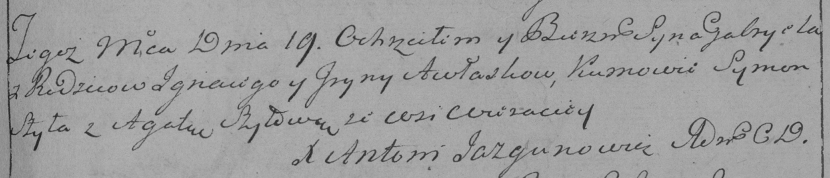 Tegoż Mca Dnia 19. Ochrzciłem y Bierzm Syna Gabryela
z Rodzicow Ignacego y Jryny Awłaskow, Kumowie Symon
Szyła z Agatą Szyłową ze wsi
X Antoni Jazgunowicz Adm C D.